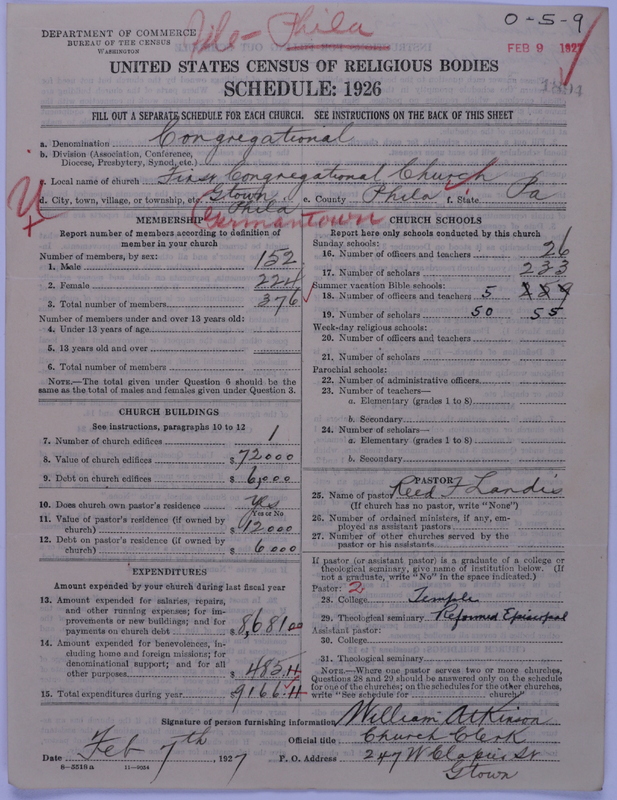 File - Phila
0-5-9
DEPARTMENT OF COMMERCE
BUREAU OF THE CENSUS
WASHINGTON
FEB 9 1927
1894
UNITED STATES CENSUS OF RELIGIOUS BODIES
SCHEDULE: 1926
FILL OUT A SEPARATE SCHEDULE FOR EACH CHURCH. SEE INSTRUCTIONS ON THE BACK OF THIS SHEET
a. Denomination Congregational
b. Division (Association, Conference, Diocese, Presbytery, Synod, etc.)
c. Local name of church First Congregational Church
d. City, town, village, or township, etc. Gtown Phila e. County Phila f. State Pa
Germantown
MEMBERSHIP
Report number of members according to definition of member in your church
Number of members, by sex:
1. Male 152
2. Female 224
3. Total number of members 376
Number of members under and over 13 years old:
4. Under 13 years of age
5. 13 years old and over
6. Total number of members
NOTE.—The total given under Question 6 should be the same as the total of males and females given under Question 3.
CHURCH BUILDINGS
See instructions, paragraphs 10 to 12
7. Number of church edifices 1
8. Value of church edifices $ 72000
9. Debt on church edifices $ 6,000
10. Does church own pastor's residence Yes
Yes or No
11. Value of pastor's residence (if owned by church) $ 12000
12. Debt on pastor's residence (if owned by church) $ 6000
EXPENDITURES
Amount expended by your church during last fiscal year
13. Amount expended for salaries, repairs, and other running expenses; for improvements or new buildings; and for payments on church debt $ 8,681.00
14. Amount expended for benevolences, including home and foreign missions; for denominational support; and for all other purposes $ 485.11
15. Total expenditures during year $ 9166.11
CHURCH SCHOOLS
Report here only schools conducted by this church
Sunday schools:
16. Number of officers and teachers 26
17. Number of scholars 233
Summer vacation Bible schools:
18. Number of officers and teachers 5
19. Number of scholars 50 55
Week-day religious schools:
20. Number of officers and teachers
21. Number of scholars
Parochial schools:
22. Number of administrative officers
23. Number of teachers—
a. Elementary (grades 1 to 8)
b. Secondary
24. Number of scholars—
a. Elementary (grades 1 to 8)
b. Secondary
PASTOR
25. Name of pastor Reed F Landis
(If church has no pastor, write "None")
26. Number of ordained ministers, if any, employed as assistant pastors
27. Number of other churches served by the pastor or his assistants
If pastor (or assistant pastor) is a graduate of a college or theological seminary, give name of institution below. (If not a graduate, write "No" in the space indicated.)
Pastor: 2
28. College Temple
29. Theological seminary Reformed Episcopal
Assistant pastor:
30. College
31. Theological seminary
NOTE.—Where one pastor serves two or more churches, Questions 28 and 29 should be answered only on the schedule for one of the churches; on the schedules for the other churches, write "See schedule for church."
Signature of person furnishing information William Atkinson
Official title Church Clerk
Date Feb 7th 1927 P. O. Address 247 W Clapier St
Gtown
8—5518a 11—9034